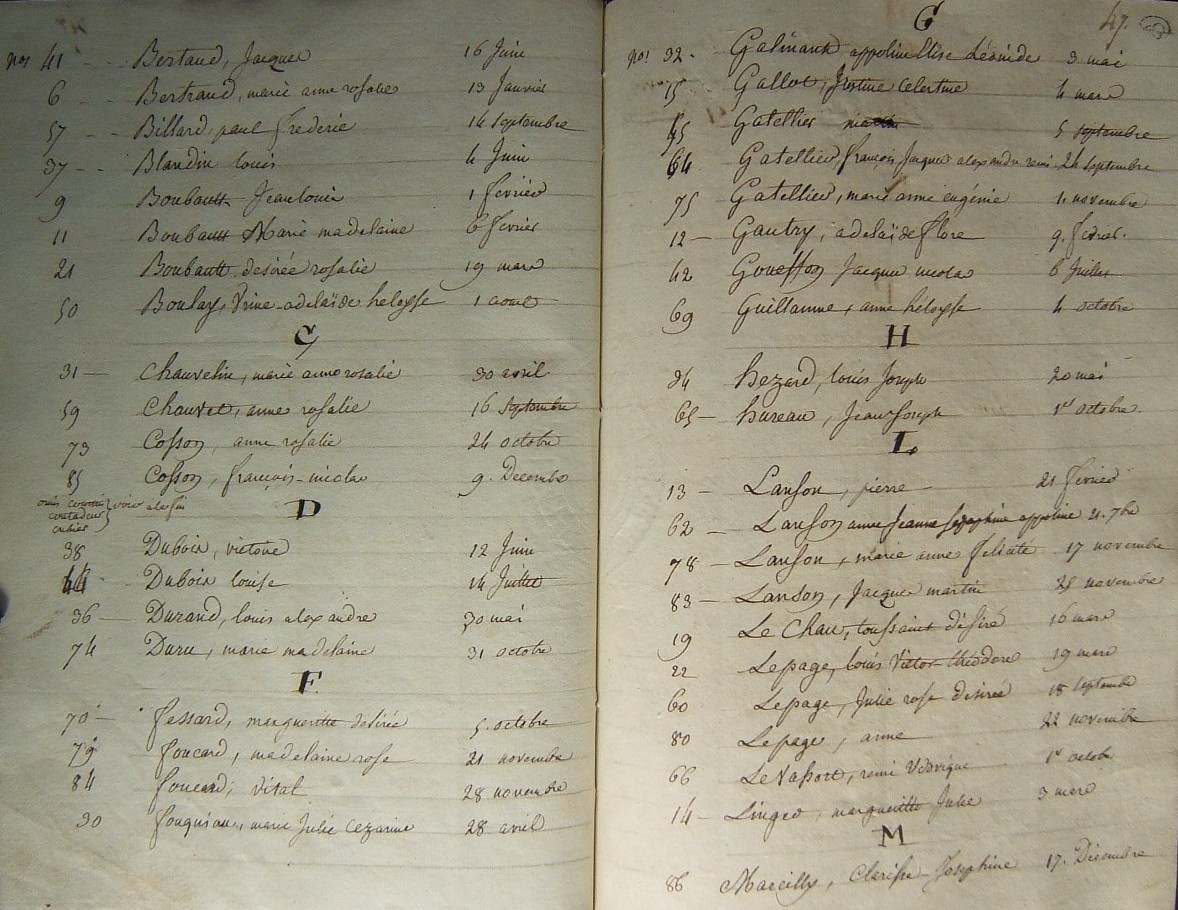 nos 41 - - Bertaud, Jacques 16 Juin
6 - - Bertrand, marie anne rosalie 13 Janvier
57 - - Billard, paul frederic 14 Septembre
37 - - Blandin louis 4 Juin
9 Boubault Jean louis 1 fevrier
11 Boubault Marie madelaine 6 fevrier
21 Boubault desirée rosalie 19 mars
50 Boulay, Irine adelaïde heloyse 1 aout
C
31 — Chauvelin, marie anne rosalie 30 avril
59 Chauvet, anne rosalie 16 Septembre
73 Cosson, anne rosalie 24 octobre
85 Cosson, françois-nicolas 9. Decembre
D
38 Dubois, victoire 12 Juin
44 Dubois louise 14 Juillet
36 — Durand, louis alexandre 30 mai
74 Duru, marie madelaine 31 octobre
F
70 — fessard, margueritte desirée 5. octobre
79 foucard, madelaine rose 21 novembre
84 foucard, vital 28 novembre
30 fouquiau, marie Julie Cezarine 28 avril
47.
G
nos 32 - Galmard appoline Elise Léonide 3 mai
15 Gallot, Justine Celestine 4 mars
45 Gatellier 5 septembre
64 Gatellier, françois Jacques alexandre remi. 24 septembre
75 Gatellier, marie anne eugénie 4 novembre
12 — Gautry, adelaïde flore 9. fevrier.
42 Goueffon Jacques nicolas 6 Juillet
69 Guillaume, anne héloyse 4 octobre
H
34 hezard, louis Joseph 20 mai
65 — hureau, Jean Joseph 1er octobre.
L
13 — Lanson, pierre — 21 fevrier
62 — Lanson anne Jeanne Séraphine appoline 21. 7bre
78 — Lanson, marie anne felicité 17 novembre
83 — Lanson, Jacques martin 28 novembre
19 Le Chau, toussaint désiré 16 mars
22 Lepage, louis Victor théodore 19 mars
60 Lepage, Julie rose desirée 18 septembre
80 Lepage, anne 22 novembre
66 Levasson, remi 1er octobre
14 — Linger, margueritte Julie 3 mars
M
86 Marcilly, Clarisse Josephine 17. Décembre